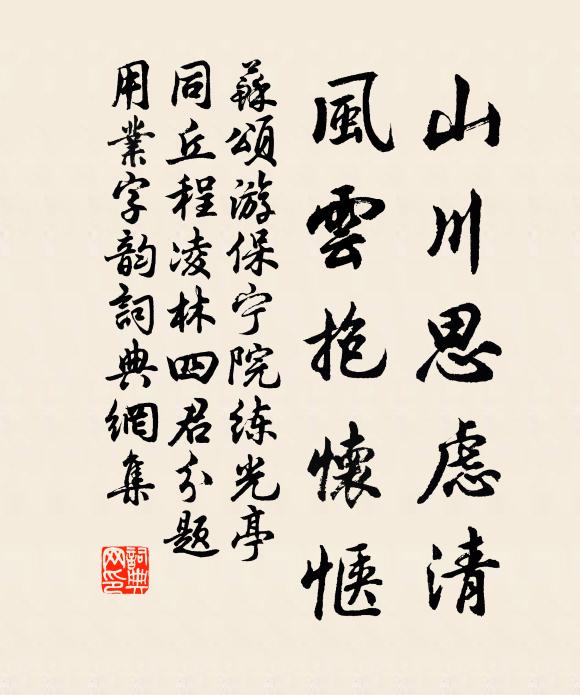 山川思慮清
風雲抱懷愜
蘇頌游保宁院练光亭
同丘程凌林四君分题
用業字韵詞典網集
詞典网印